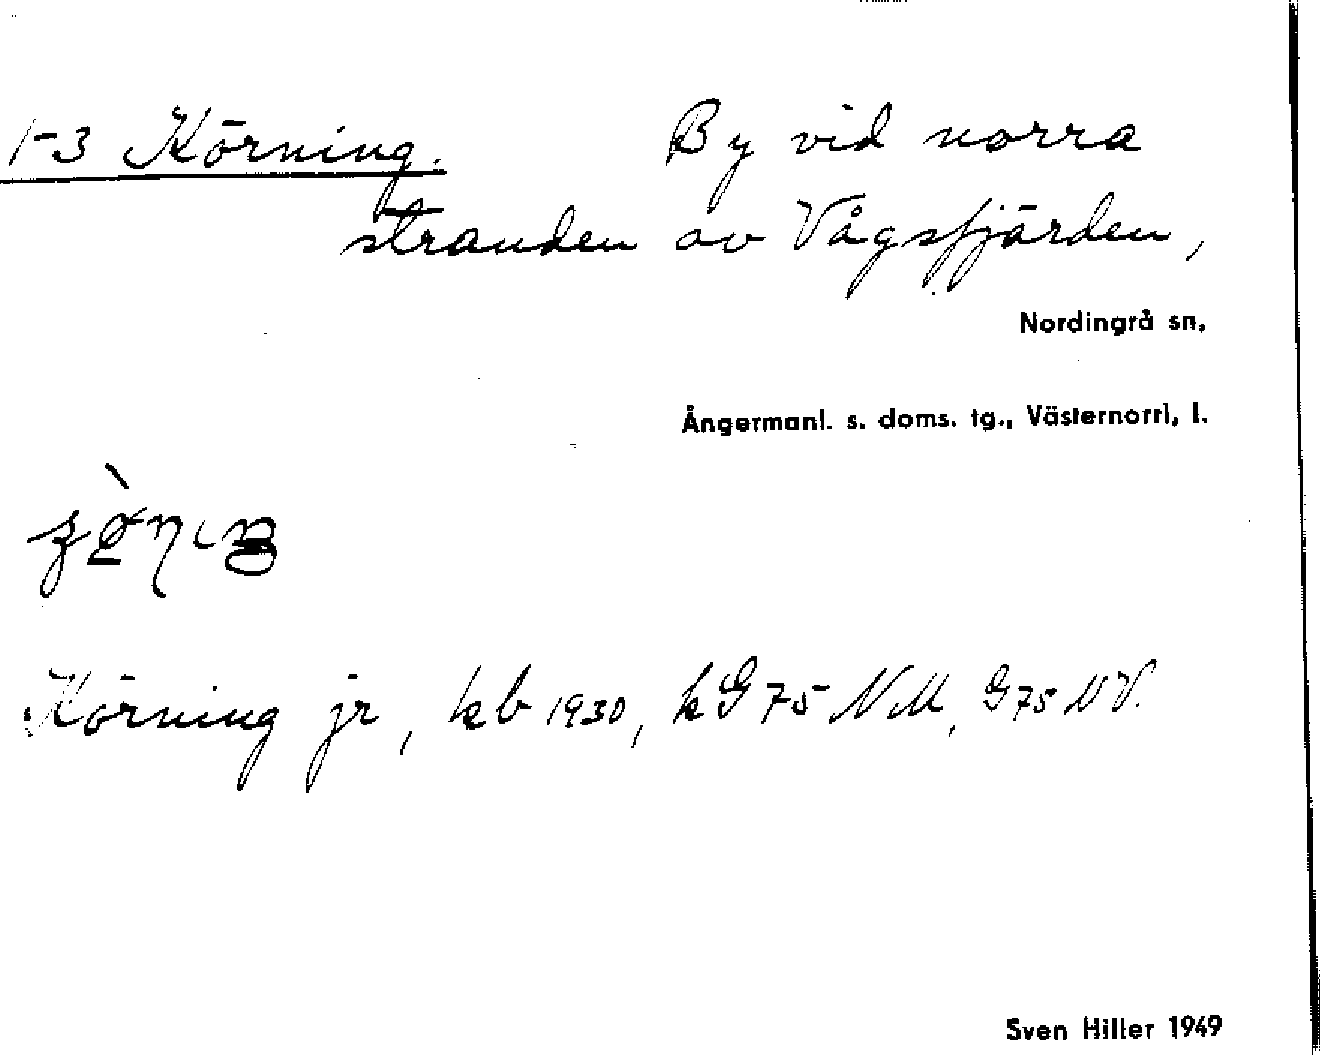 1-3 Körning. By vid norra
stranden av Vågsfjärden,
Nordingrå sn,
Ångermanl. s. doms. tg., Västernorrl, l.
Körning jr, kb 1930, k G 75 NM, G 75 NV.
Sven Hiller 1949